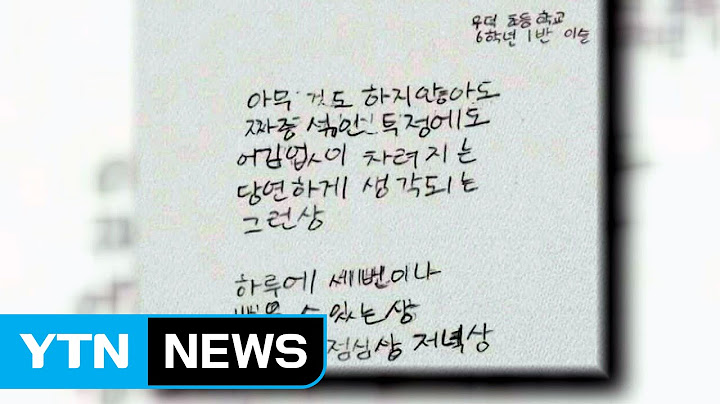 우덕 초등학교
6학년 1반 이슬
아무 것도 하지않아도
짜증 섞인 투정에도
어김없이 차려지는
당연하게 생각되는
그런상
하루에 세번이나
받을 수 있는상
점심상 저녁상
YTN NEWS